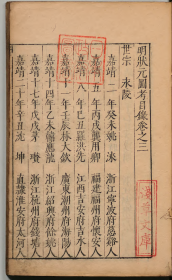 明狀元圖考目錄卷之三
世宗 永陵
嘉靖二年癸未姚淶 浙江寧波府慈谿人
嘉靖五年丙戌龔用卿 福建福州府懷安人
嘉靖八年己丑羅洪先 江西吉安府吉水人
嘉靖十一年壬辰林大欽 廣東潮州府海陽
嘉靖十四年乙未韓應龍 浙江紹興府餘姚
嘉靖十七年戊戌茅瓚 浙江杭州府錢塘
嘉靖二十年辛丑沈坤 直隸淮安府太河